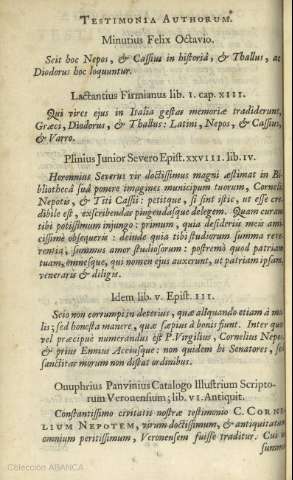 TESTIMONIA AUTHORUM.
Minutius Felix Octavio.
Scit hoc Nepos, & Cassius in historiâ, & Thallus, ac
Diodorus hoc loquuntur.
Lactantius Firmianus lib. I. cap. XIII.
Qui vires ejus in Italia gestas memoriæ tradiderunt,
Græci, Diodorus, & Thallus: Latini, Nepos, & Cassius,
& Varro.
Plinius Junior Severo Epist. XXVIII. lib. IV.
Herennius Severus vir doctissimus magni æstimat in Bi-
bliothecâ suâ ponere imagines municipum tuorum, Cornelii
Nepotis, & Titi Cassii: petitque, si sint istic, ut esse cre-
dibile est, exscribendas pingendasque delegem. Quam curam
tibi potissimum injungo: primum, quia desideriis meis ami-
cissimè obsequeris: deinde quia tibi studiorum summa reve-
rentia, summus amor studiosorum: postremò quod patriam
tuam, omnesque, qui nomen ejus auxerunt, ut patriam ipsam,
veneraris & diligis.
Idem lib. V. Epist. III.
Scio non corrumpi in deterius, quæ aliquando etiam à ma-
lis; sed honesta manere, quæ sæpius à bonis fiunt. Inter quos
vel præcipuè numerandus est P. Virgilius, Cornelius Nepos,
& prius Ennius Acciusque: non quidem hi Senatores, sed
sanctitas morum non distat ordinibus.
Onuphrius Panvinius Catalogo Illustrium Scripto-
rum Veronensium; lib. VI. Antiquit.
Constantissimo civitatis nostræ testimonio C. CORNE-
LIUM NEPOTEM, virum doctissimum, & antiquitatum
omnium peritissimum, Veronensem fuisse traditur. Cui
summa
Colección ABANCA